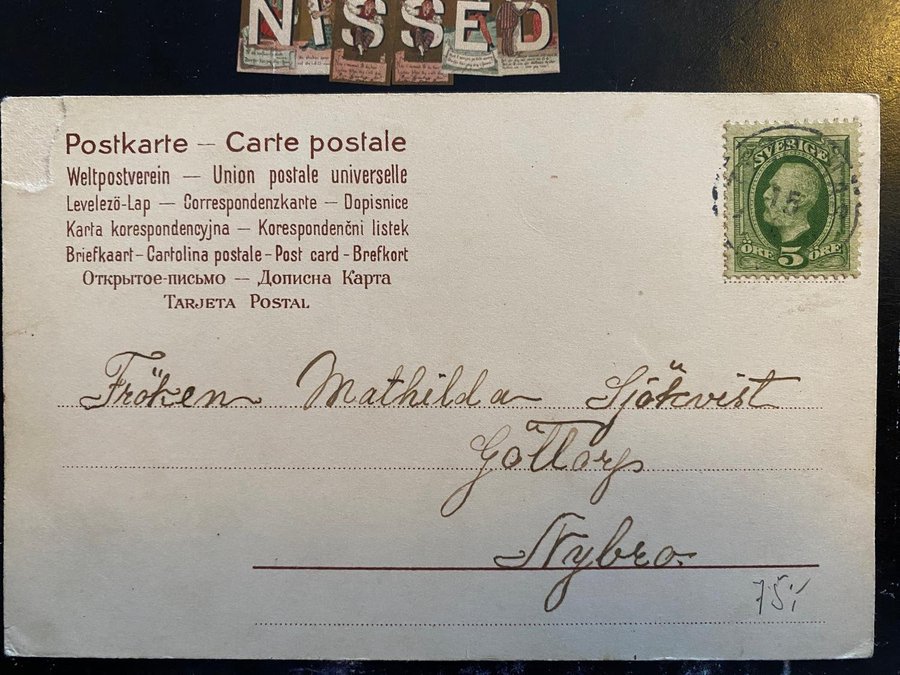 NISSED
Postkarte – Carte postale
Weltpostverein — Union postale universelle
Levelező-Lap — Correspondenzkarte – Dopisnice
Karta korespondencyjna – Korespondenční lístek
Briefkaart – Cartolina postale – Post card – Brefkort
Открытое письмо — Дописна Карта
Tarjeta Postal
SVERIGE
15
ÖRE 5 ÖRE
Fröken Mathilda Sjökvist
Göltorp
Nybro